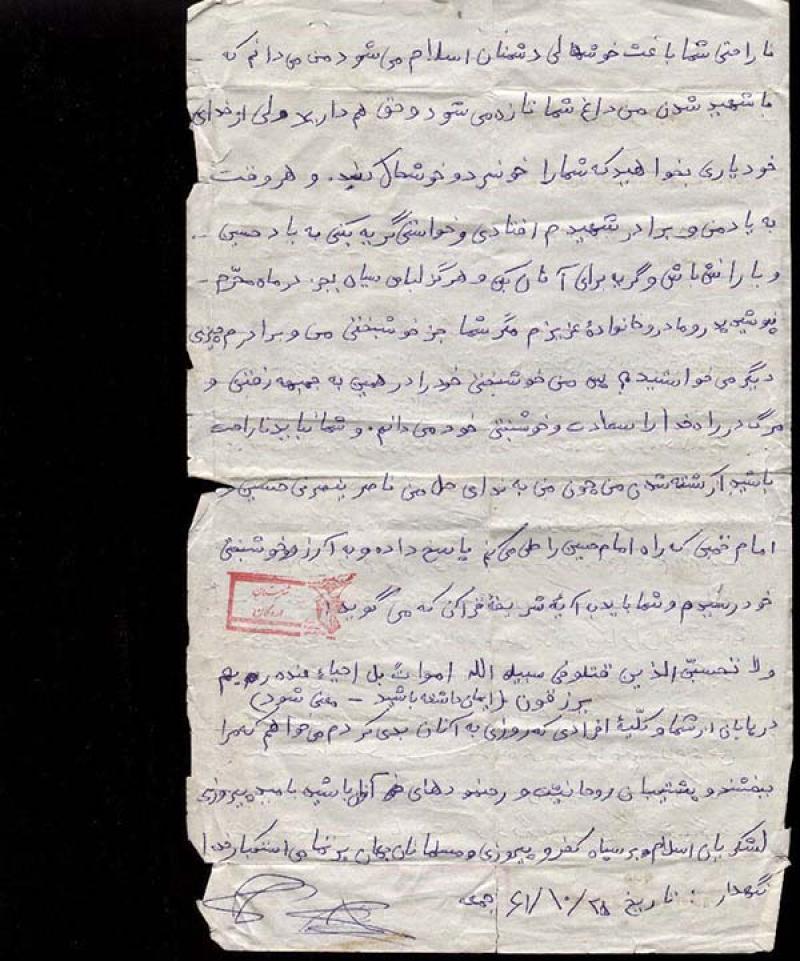 ناراحتی شما باعث خوشحالی دشمنان اسلام می شود من می دانم که
با شهید شدن من داغ شما تازه می شود و حق هم دارید ولی از خدای
خود یاری بخواهید که شما را خونسرد و خوشحال کند. و هر وقت
به یاد من و برادر شهیدم افتادی و خواستی گریه بکنی به یاد حسین
و یارانش باش و گریه برای آنان بکن و هرگز لباس سیاه بجز در ماه محرّم
نپوشید پدر و مادر و خانوادهٔ عزیزم مگر شما جز خوشبختی من و برادرم چیزی
دیگر می خواستید من خوشبختی خود را در همین به جبهه رفتن و
مرگ در راه خدا را سعادت و خوشبختی خود می دانم. و شما نباید ناراحت
باشید از کشته شدن من چون من به ندای هل من ناصر ینصرنی حسین و
امام خمینی که راه امام حسین را طی می کند پاسخ داده و به آرزو و خوشبختی
خود رسیدم و شما باید به آیهٔ شریفهٔ قرآن که می گوید:
ولا تحسبنّ الذین قتلو فی سبیل الله امواتً بل احیاءً عنده ربهم
یرزقون (ایمان داشته باشید – معنی شود)
در پایان از شما و کلّیهٔ افرادی که روزی به آنان بدی کردم می خواهم که مرا
ببخشند و پشتیبان روحانیت و رهنمودهای باشید به امید پیروزی
لشکریان اسلام بر سپاه کفر و پیروزی مسلمانان جهان بر تمامی استکبار خدا
نگهدار : تاریخ ۶۱/۱۰/۲۸ جمعه